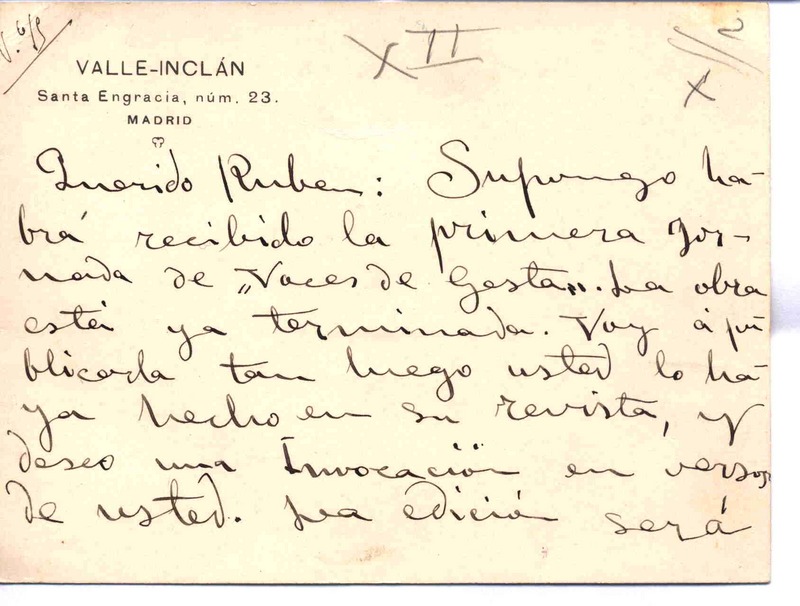 XII
VALLE-INCLÁN
Santa Engracia, núm. 23.
MADRID
Querido Ruben: Supongo ha-
brá recibido la primera Jor-
nada de "Voces de Gesta". La obra
está ya terminada. Voy á pu
blicarla tan luego usted lo ha-
ya hecho en su revista, y
deseo una Invocación en versos
de usted. La edición será